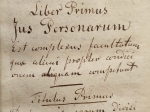 Liber Primus
Jus Personarum
est complexus facultatum
quæ alicui propter condici
onem aliquam competunt
Titulus Primus